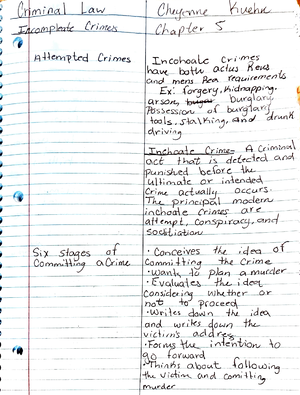 Criminal Law
Cheyenne Kuehn
Incomplete Crimes
Chapter 5
Attempted Crimes
Incohoate Crimes
have both actus Reus
and mens Rea requirements
Ex: forgery, Kidnapping,
arson, burglary,
Possession of burglary
tools, Stalking, and drunk
driving
Inchoate Crime- A Criminal
act that is detected and
punished before the
ultimate or intended
Crime actually occurs.
The principal modern
inchoate crimes are
attempt, conspiracy, and
Six stages of
Committing a Crime
· Conceives the idea of
Committing the Crime
· Wants to plan a murder
· Evaluates the idea,
Considering whether or
not to proceed
· Writes down the idea
and writes down the
victim's address
· Forms the intention to
go forward
· Thinks about following
the victim and comitting
murder